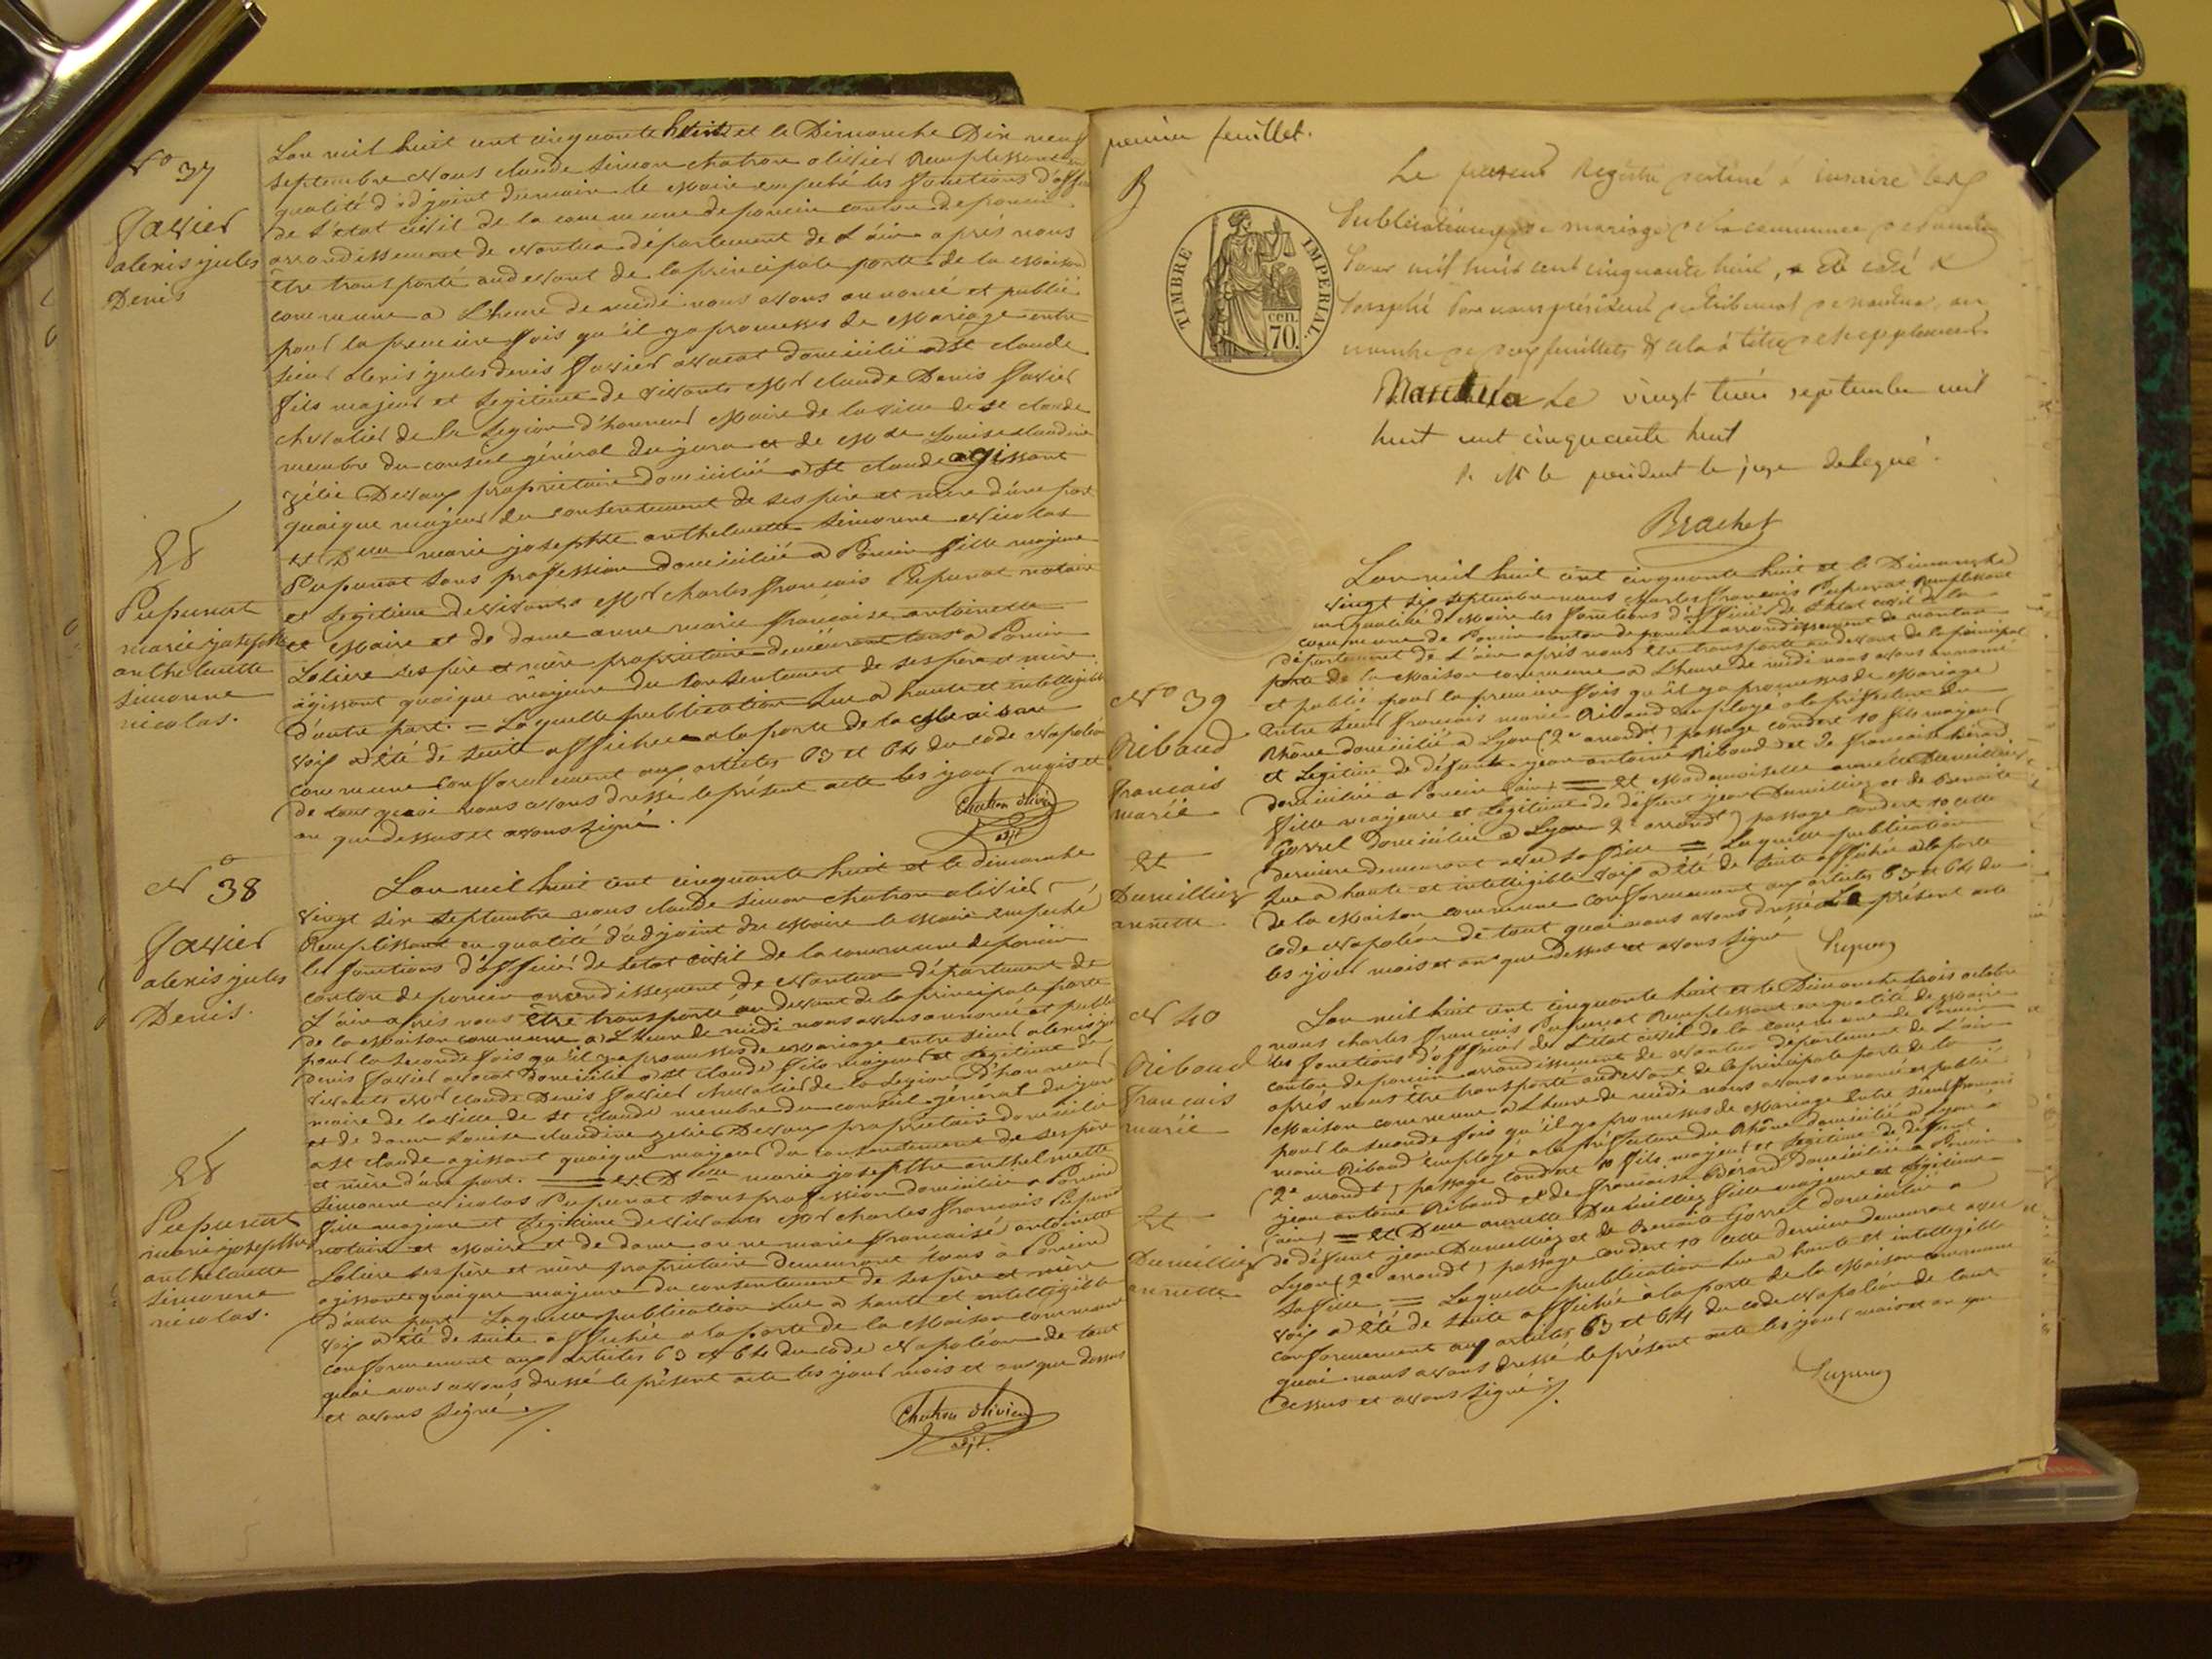 N° 37
Favier
alexis jules
Denis
Et
Pupunat
marie josephte
anthelmette
simonne
nicolas.
L'an mil huit cent cinquante huit et le Dimanche Dix neuf
septembre Nous claude simon chatron olivier Remplissant en
qualité d'adjoint du maire le Maire empeché les fonctions d'offi
de l'état civil de la commune de poncin canton de poncin
arrondissement de Nantua département de L'ain après nous
être transporté au devant de la principale porte de la Maison
commune a L'heure de midi nous avons annoncé et publié
pour la première fois qu'il y a promesses de Mariage entre
sieur alexis jules denis Favier avocat domicilié a St claude
fils majeur et legitime de vivants Mr claude Denis Favier
chevalier de la Legion d'honneur Maire de la ville de St claude
membre du conseil général du jura et de Mde Louise claudine
zélie Devaux propriétaire domicilié a St claude agissant
quoique majeur du consentement de ses père et mère d'une part
et Dlle marie josephte anthelmette simonne Nicolas
Pupunat sans profession domiciliée a Poncin fille majeure
et legitime de vivants Mr charles françois Pupunat notaire
et Maire et de dame anne marie françoise antoinette
Loliere ses père et mère propriétaire demeurant tous a Poncin
agissant quoique majeure du consentement de ses père et mère
d'autre part. = Laquelle publication Lue a haute et intelligible
voix a été de suite affichée a la porte de la Maison
commune conformement aux articles 63 et 64 du code Napoléon
de tout quoi nous avons dressé le présent acte les jour mois et
an que dessus et avons signé.
Chatron olivier
adjt
N° 38
Favier
alexis jules
Denis.
Et
Pupunat
marie josephte
anthelmette
simonne
nicolas.
L'an mil huit cent cinquante huit et le dimanche
vingt six septembre nous claude simon chatron olivier
Remplissant en qualité d'adjoint du Maire le Maire empeché
les fonctions d'officier de l'etat civil de la commune de poncin
canton de poncin arrondissement de Nantua département de
L'ain après nous être transporté au devant de la principale porte
de la Maison commune a L'heure de midi nous avons annoncé et publié
pour la seconde fois qu'il y a promesses de Mariage entre sieur alexis jules
denis Favier avocat domicilié a St claude fils majeur et legitime de
vivants Mr claude Denis Favier chevalier de la Legion D'honneur
maire de la ville de St claude membre du conseil général du jura
et de dame Louise claudine zelie Devaux propriétaire domicilié
a St claude agissant quoique majeur du consentement de ses père
et mère d'une part. = et Dlle marie josephte anthelmette
simonne Nicolas Pupunat sans profession domiciliée a Poncin
fille majeure et legitime de vivants Mr charles françois Pupunat
notaire et Maire et de dame anne marie françoise antoinette
Loliere ses père et mère propriétaire demeurant tous a Poncin
agissante quoique majeure du consentement de ses père et mère
d'autre part Laquelle publication Lue a haute et intelligible
voix a été de suite affichée a la porte de la Maison commune
conformement aux articles 63 et 64 du code Napoléon de tout
quoi nous avons dressé le présent acte les jour mois et an que dessus
et avons signé
Chatron olivier
adjt.
premier feuillet.
B
TIMBRE IMPERIAL.
cen.
70.
Le présent Registre destiné à inscrire les
Publications de mariage de la commune de Poncin
Pour mil huit cent cinquante huit, a été coté &
Paraphé Par nous président du tribunal de nantua, au
nombre de deux feuillets & cela à titre de supplément.
Nantua Le vingt trois septembre mil
huit cent cinquante huit
P. Mr le président le juge délégué.
Brachet
N° 39
Ribaud
françois
marie
Et
Dumilliez
annette.
L'an mil huit cent cinquante huit et le Dimanche
vingt six septembre nous charles francois Pupunat Remplissant
en qualité de Maire les fonctions d'officier de l'etat civil de la
commune de Poncin canton de poncin arrondissement de nantua
département de L'ain après nous être transporté au devant de la principal
porte de la Maison commune a L'heure de midi nous avons annoncé
et publié pour la premier fois qu'il y a promesses de Mariage
entre sieur françois marie Ribaud employé a la préfecture du
Rhône domicilié a Lyon (2e arrondt) passage condert 10 fils majeur
et Legitime de défunt jean antoine Ribaud et de francoise Bérard
domiciliée a Poncin (ain) = et Mademoiselle annette Dumilliez
fille majeure et Legitime de défunt jean Dumilliez et de Benoite
Gorrel domiciliée a Lyon 2e arrondt) passage condert 10 cette
derniere demeurant avec sa fille = Laquelle publication
Lue a haute et intelligible voix a été de suite affichée a la porte
de la Maison commune conformement aux articles 63 et 64 du
code Napoléon de tout quoi nous avons dressé Le présent acte
les jour mois et an que dessus et avons signé
Pupunat
N 40
Ribaud
françois
marie
Et
Dumilliez
annette
L'an mil huit cent cinquante huit et le Dimanche trois octobre
nous charles françois Pupunat Remplissant en qualité de Maire
les fonctions d'officier de l'etat civil de la commune de Poncin
canton de poncin arrondissement de Nantua département de L'ain
après nous être transporté au devant de la principale porte de la
Maison commune a L'heure de midi nous avons annoncé et publié
pour la seconde fois qu'il y a promesses de Mariage Entre sieur françois
marie Ribaud employé a la préfecture du Rhône domicilié a Lyon
(2e arrondt) passage condert 10 fils majeur et legitime de défunt
jean antoine Ribaud et de francoise Bérard domiciliée a Poncin
(ain) = et Dlle annette Dumilliez fille majeure et legitime
de défunt jean Dumilliez et de Benoite Gorrel domiciliée a
Lyon (2e arrondt) passage condert 10 cette derniere demeurant avec
sa fille = Laquelle publication Lue a haute et intelligible
voix a été de suite affichée a la porte de la Maison commune
conformement aux articles 63 et 64 du code Napoléon de tout
quoi nous avons dressé le présent acte les jour mois et an que
dessus et avons signé
Pupunat